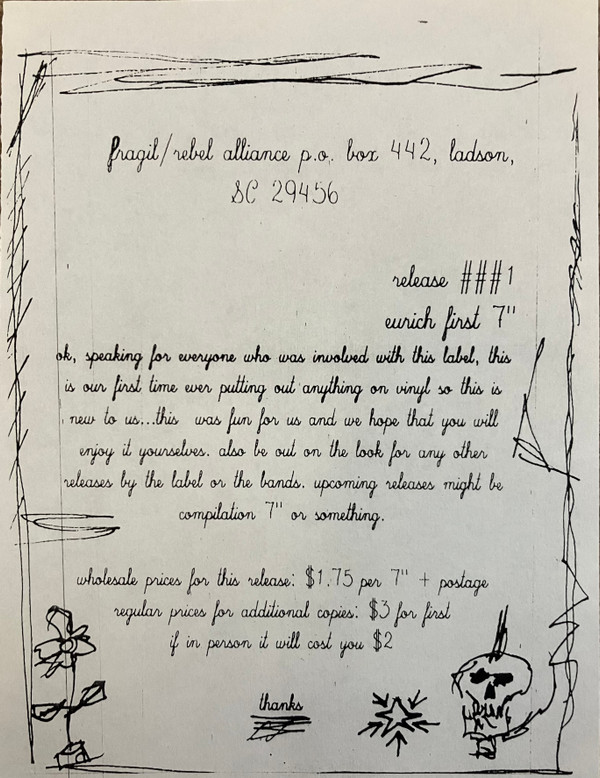 fragil/rebel alliance p.o. box 442, ladson,
SC 29456
release ###1
eurich first 7"
ok, speaking for everyone who was involved with this label, this
is our first time ever putting out anything on vinyl so this is
new to us...this was fun for us and we hope that you will
enjoy it yourselves. also be out on the look for any other
releases by the label or the bands. upcoming releases might be
compilation 7" or something.
wholesale prices for this release: $1.75 per 7" + postage
regular prices for additional copies: $3 for first
if in person it will cost you $2
thanks